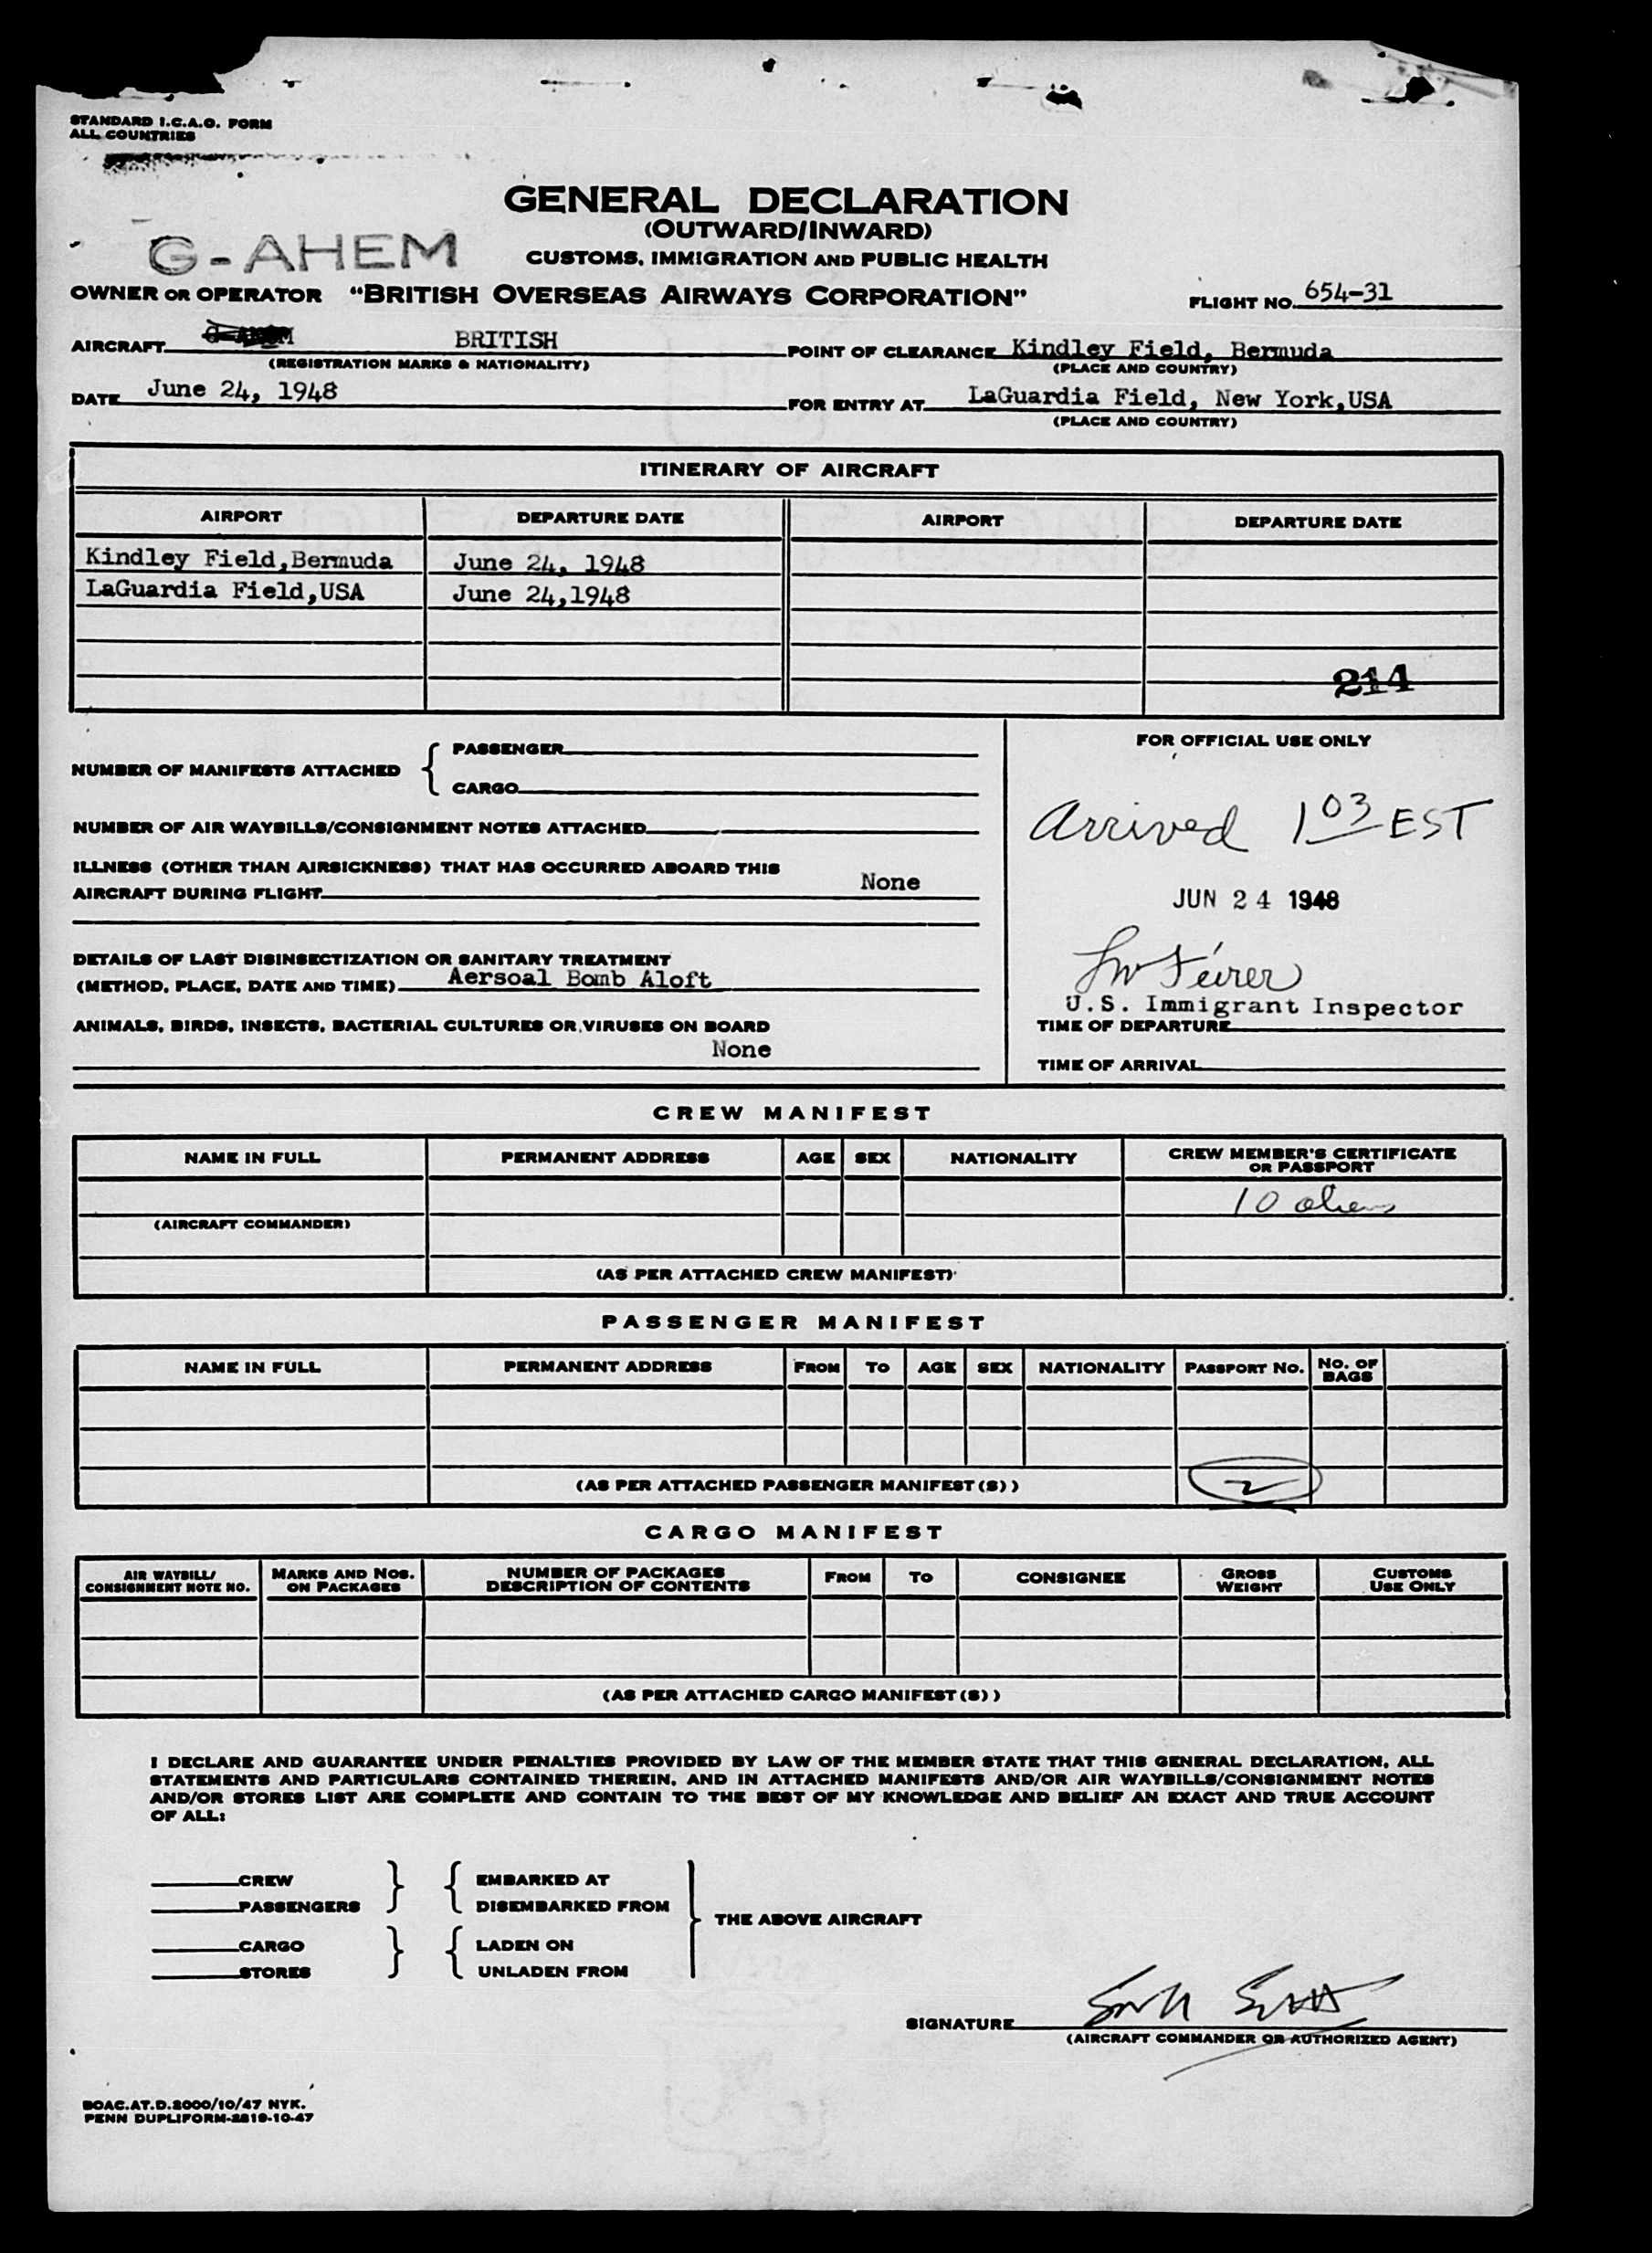 STANDARD I.C.A.O. FORM
ALL COUNTRIES
GENERAL DECLARATION
(OUTWARD/INWARD)
G-AHEM
CUSTOMS, IMMIGRATION AND PUBLIC HEALTH
OWNER OR OPERATOR "BRITISH OVERSEAS AIRWAYS CORPORATION"
FLIGHT NO. 654-31
AIRCRAFT BRITISH
(REGISTRATION MARKS & NATIONALITY)
POINT OF CLEARANCE Kindley Field, Bermuda
(PLACE AND COUNTRY)
DATE June 24, 1948
FOR ENTRY AT LaGuardia Field, New York,USA
(PLACE AND COUNTRY)
ITINERARY OF AIRCRAFT
AIRPORT DEPARTURE DATE AIRPORT DEPARTURE DATE
Kindley Field,Bermuda June 24, 1948
LaGuardia Field,USA June 24,1948
214
NUMBER OF MANIFESTS ATTACHED
PASSENGER
CARGO
NUMBER OF AIR WAYBILLS/CONSIGNMENT NOTES ATTACHED
ILLNESS (OTHER THAN AIRSICKNESS) THAT HAS OCCURRED ABOARD THIS
AIRCRAFT DURING FLIGHT None
DETAILS OF LAST DISINSECTIZATION OR SANITARY TREATMENT
(METHOD, PLACE, DATE AND TIME) Aersoal Bomb Aloft
ANIMALS, BIRDS, INSECTS, BACTERIAL CULTURES OR VIRUSES ON BOARD
None
FOR OFFICIAL USE ONLY
Arrived 103 EST
JUN 24 1948
U.S. Immigrant Inspector
TIME OF DEPARTURE
TIME OF ARRIVAL
CREW MANIFEST
NAME IN FULL PERMANENT ADDRESS AGE SEX NATIONALITY CREW MEMBER'S CERTIFICATE
OR PASSPORT
10
(AIRCRAFT COMMANDER)
(AS PER ATTACHED CREW MANIFEST)
PASSENGER MANIFEST
NAME IN FULL PERMANENT ADDRESS FROM TO AGE SEX NATIONALITY PASSPORT NO. NO. OF
BAGS
(AS PER ATTACHED PASSENGER MANIFEST(S)) 2
CARGO MANIFEST
AIR WAYBILL/
CONSIGNMENT NOTE NO.
MARKS AND NOS.
ON PACKAGES
NUMBER OF PACKAGES
DESCRIPTION OF CONTENTS
FROM TO CONSIGNEE
GROSS
WEIGHT
CUSTOMS
USE ONLY
(AS PER ATTACHED CARGO MANIFEST(S))
I DECLARE AND GUARANTEE UNDER PENALTIES PROVIDED BY LAW OF THE MEMBER STATE THAT THIS GENERAL DECLARATION, ALL
STATEMENTS AND PARTICULARS CONTAINED THEREIN, AND IN ATTACHED MANIFESTS AND/OR AIR WAYBILLS/CONSIGNMENT NOTES
AND/OR STORES LIST ARE COMPLETE AND CONTAIN TO THE BEST OF MY KNOWLEDGE AND BELIEF AN EXACT AND TRUE ACCOUNT
OF ALL:
CREW
PASSENGERS
CARGO
STORES
EMBARKED AT
DISEMBARKED FROM
LADEN ON
UNLADEN FROM
THE ABOVE AIRCRAFT
SIGNATURE
(AIRCRAFT COMMANDER OR AUTHORIZED AGENT)
BOAC.AT.D.2000/10/47 NYK.
PENN DUPLIFORM-2819-10-47